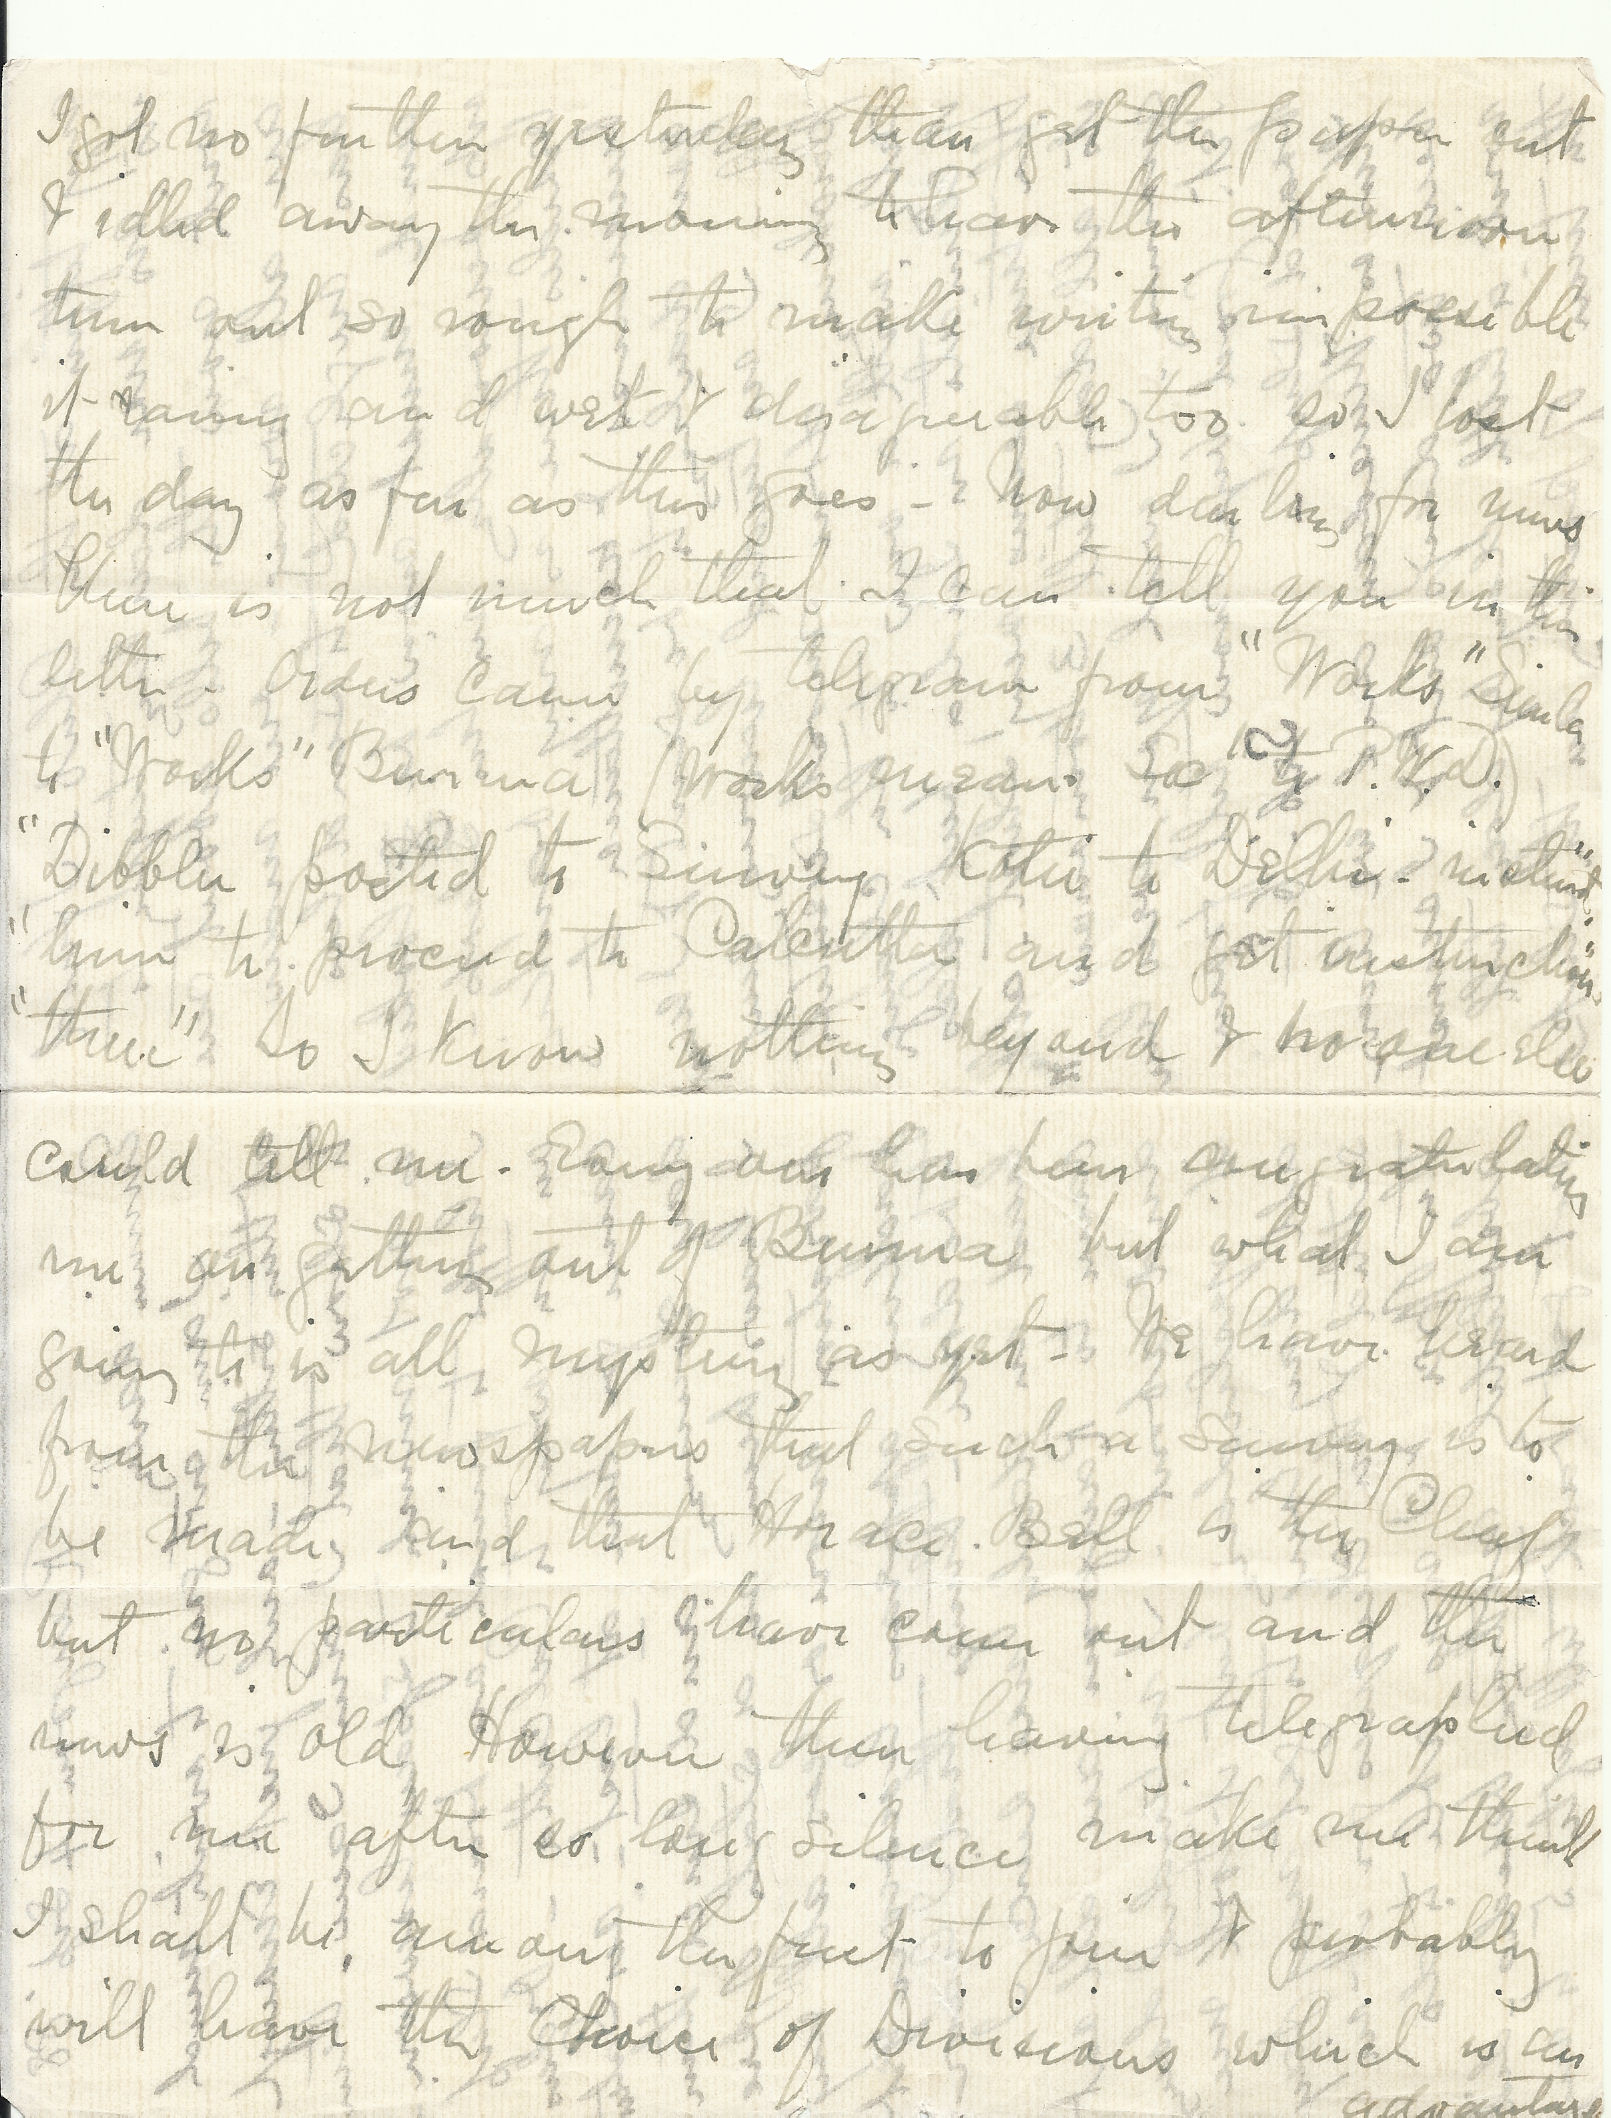 I got no further yesterday than get the paper out
& idled away the morning to have the afternoon
turn out so rough to make writing impossible
it raining and wet & disagreeable too. so I lost
the day as far as this goes - Now darling for news
there is not much that I can tell you in this
letter - Orders came by telegram from "Works" Simla
to "Works" Burma (Works means Sec y P.W.D.)
"Dibblee posted to Survey Kotri to Delhi - instruct"
"him to proceed to Calcutta and get instructions"
"there" So I know nothing beyond & no one else
could tell me. Everyone has been congratulating
me on getting out of Burma but what I am
going to is all mystery as yet - We have heard
from the newspapers that such a Survey is to
be made, and that Horace Bell is the Chief
but no particulars have come out and the
news is old However their having telegraphed
for me after so long silence make me think
I shall be, among the first to join & probably
will have the Choice of Divisions which is an
advantage